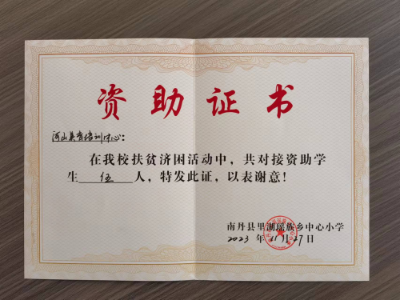 资助证书
培训中心：
在我校扶贫济困活动中，共对接资助学
生 伍 人，特发此证，以表谢意！
南丹县里湖瑶族乡中心小学
2023 年 11 月 27 日